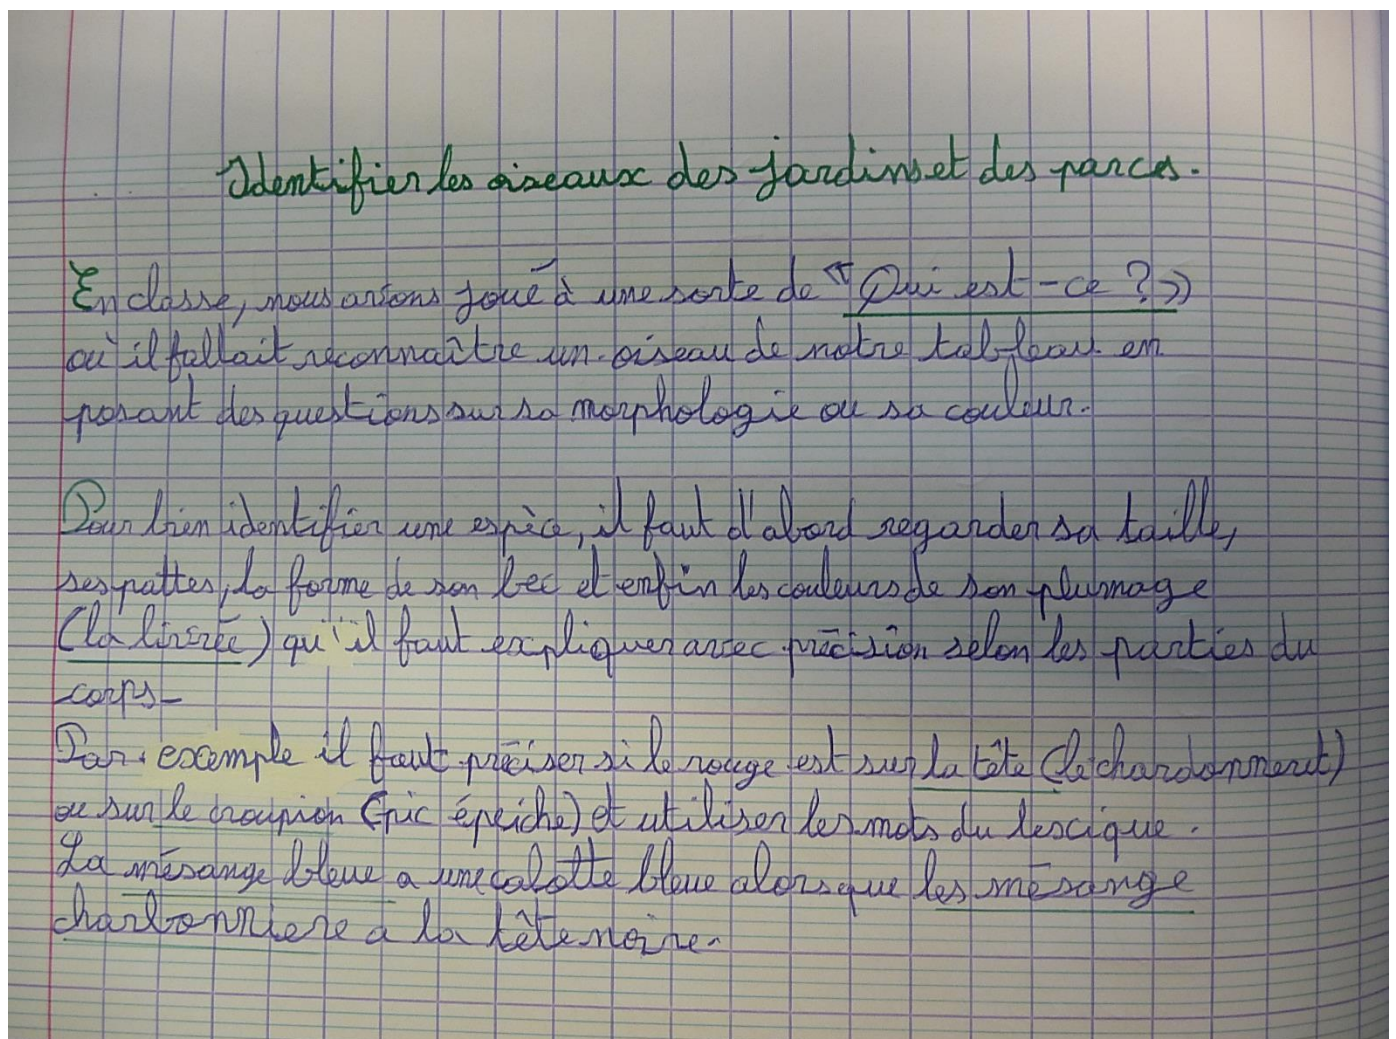 Identifier les oiseaux des jardins et des parcs.
En classe, nous avons joué à une sorte de "Qui est-ce ?»
où il fallait reconnaître un oiseau de notre tableau en
posant des questions sur sa morphologie ou sa couleur.
Pour bien identifier une espèce, il faut d'abord regarder sa taille,
ses pattes, la forme de son bec et enfin les couleurs de son plumage
(la livrée) qu'il faut expliquer avec précision selon les parties du
corps-
Par exemple il faut préciser si le rouge est sur la tête (le chardonneret)
ou sur le croupion (pic épeiche) et utiliser les mots du lexique.
La mésange bleue a une calotte bleue alors que les mésange
charbonniere a la tête noire.